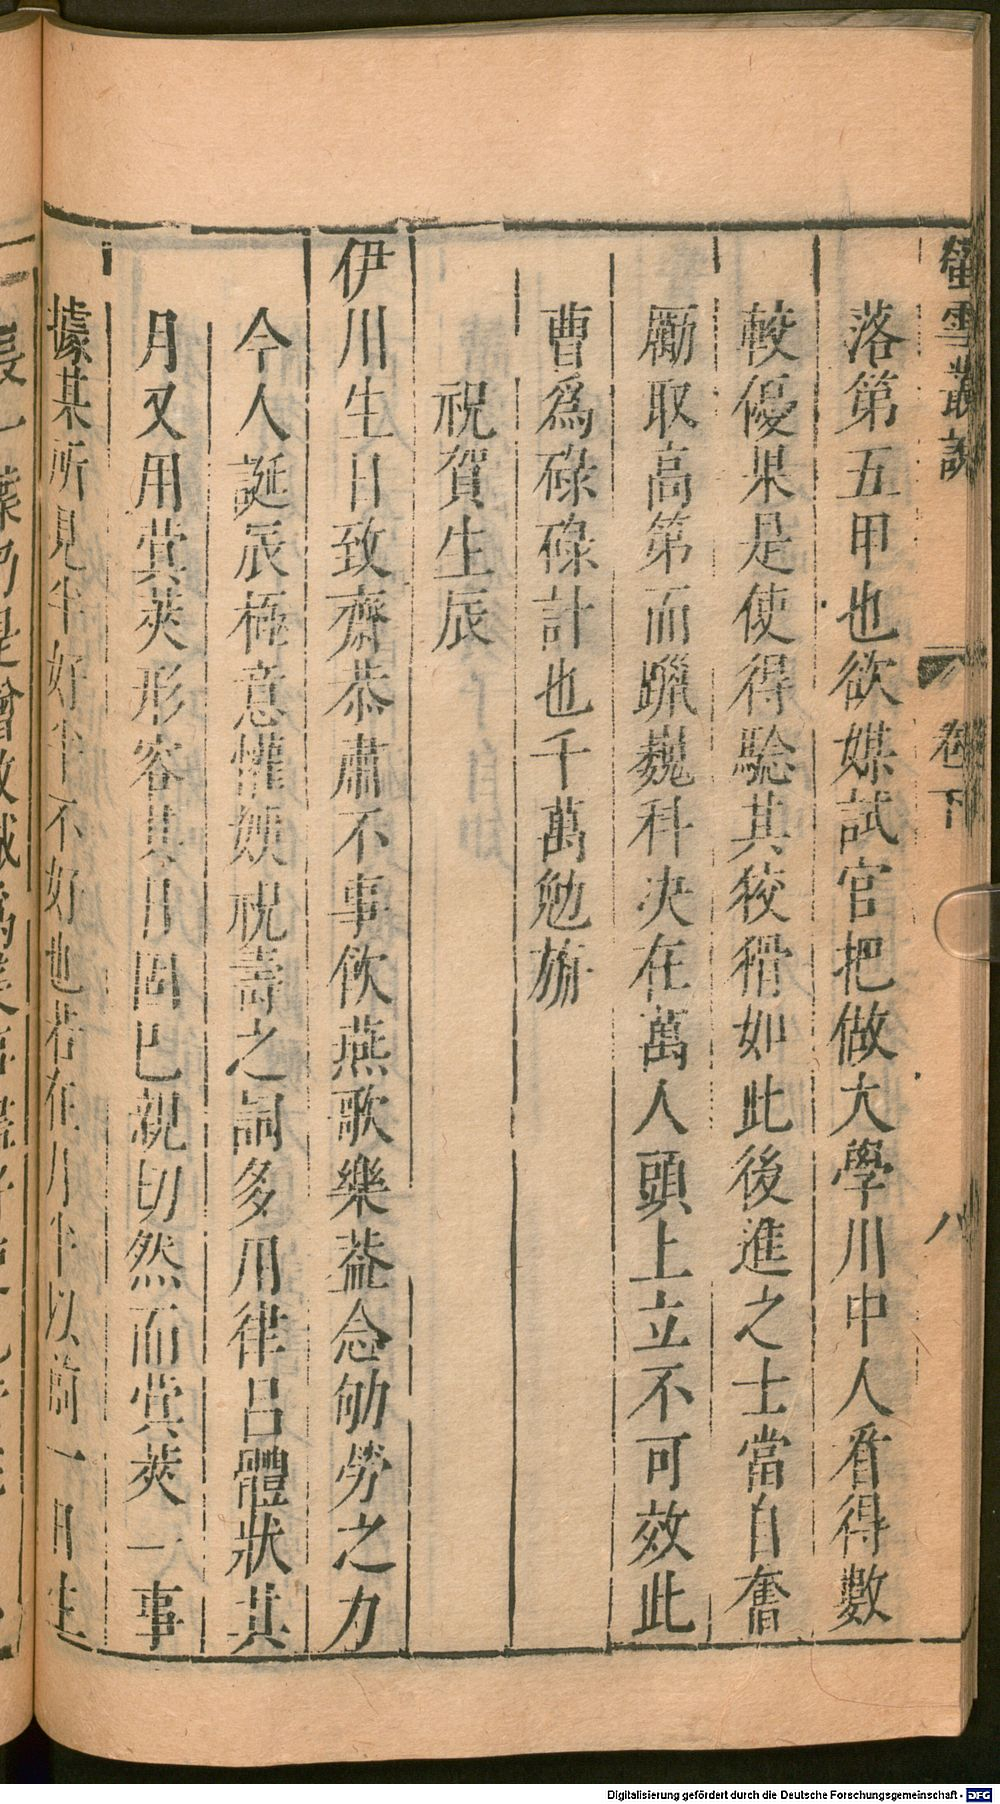 螢雪叢說 卷下 八
落第五甲也欲媒試官把做大學川中人看得數
較優果是使得驗其狡猾如此後進之士當自奮
勵取高第而躐巍科决在萬人頭上立不可效此
曹爲碌碌計也千萬勉旃
祝賀生辰
伊川生日致齋恭肅不事飲燕歌樂葢念劬勞之力
今人誕辰極意懽娛祝壽之詞多用律呂體狀其
月又用蓂莢形容其日固已親切然而蓂莢一事
據某所見半好半不好也若在月半以前一日生
Digitalisierung gefördert durch die Deutsche Forschungsgemeinschaft - DFG